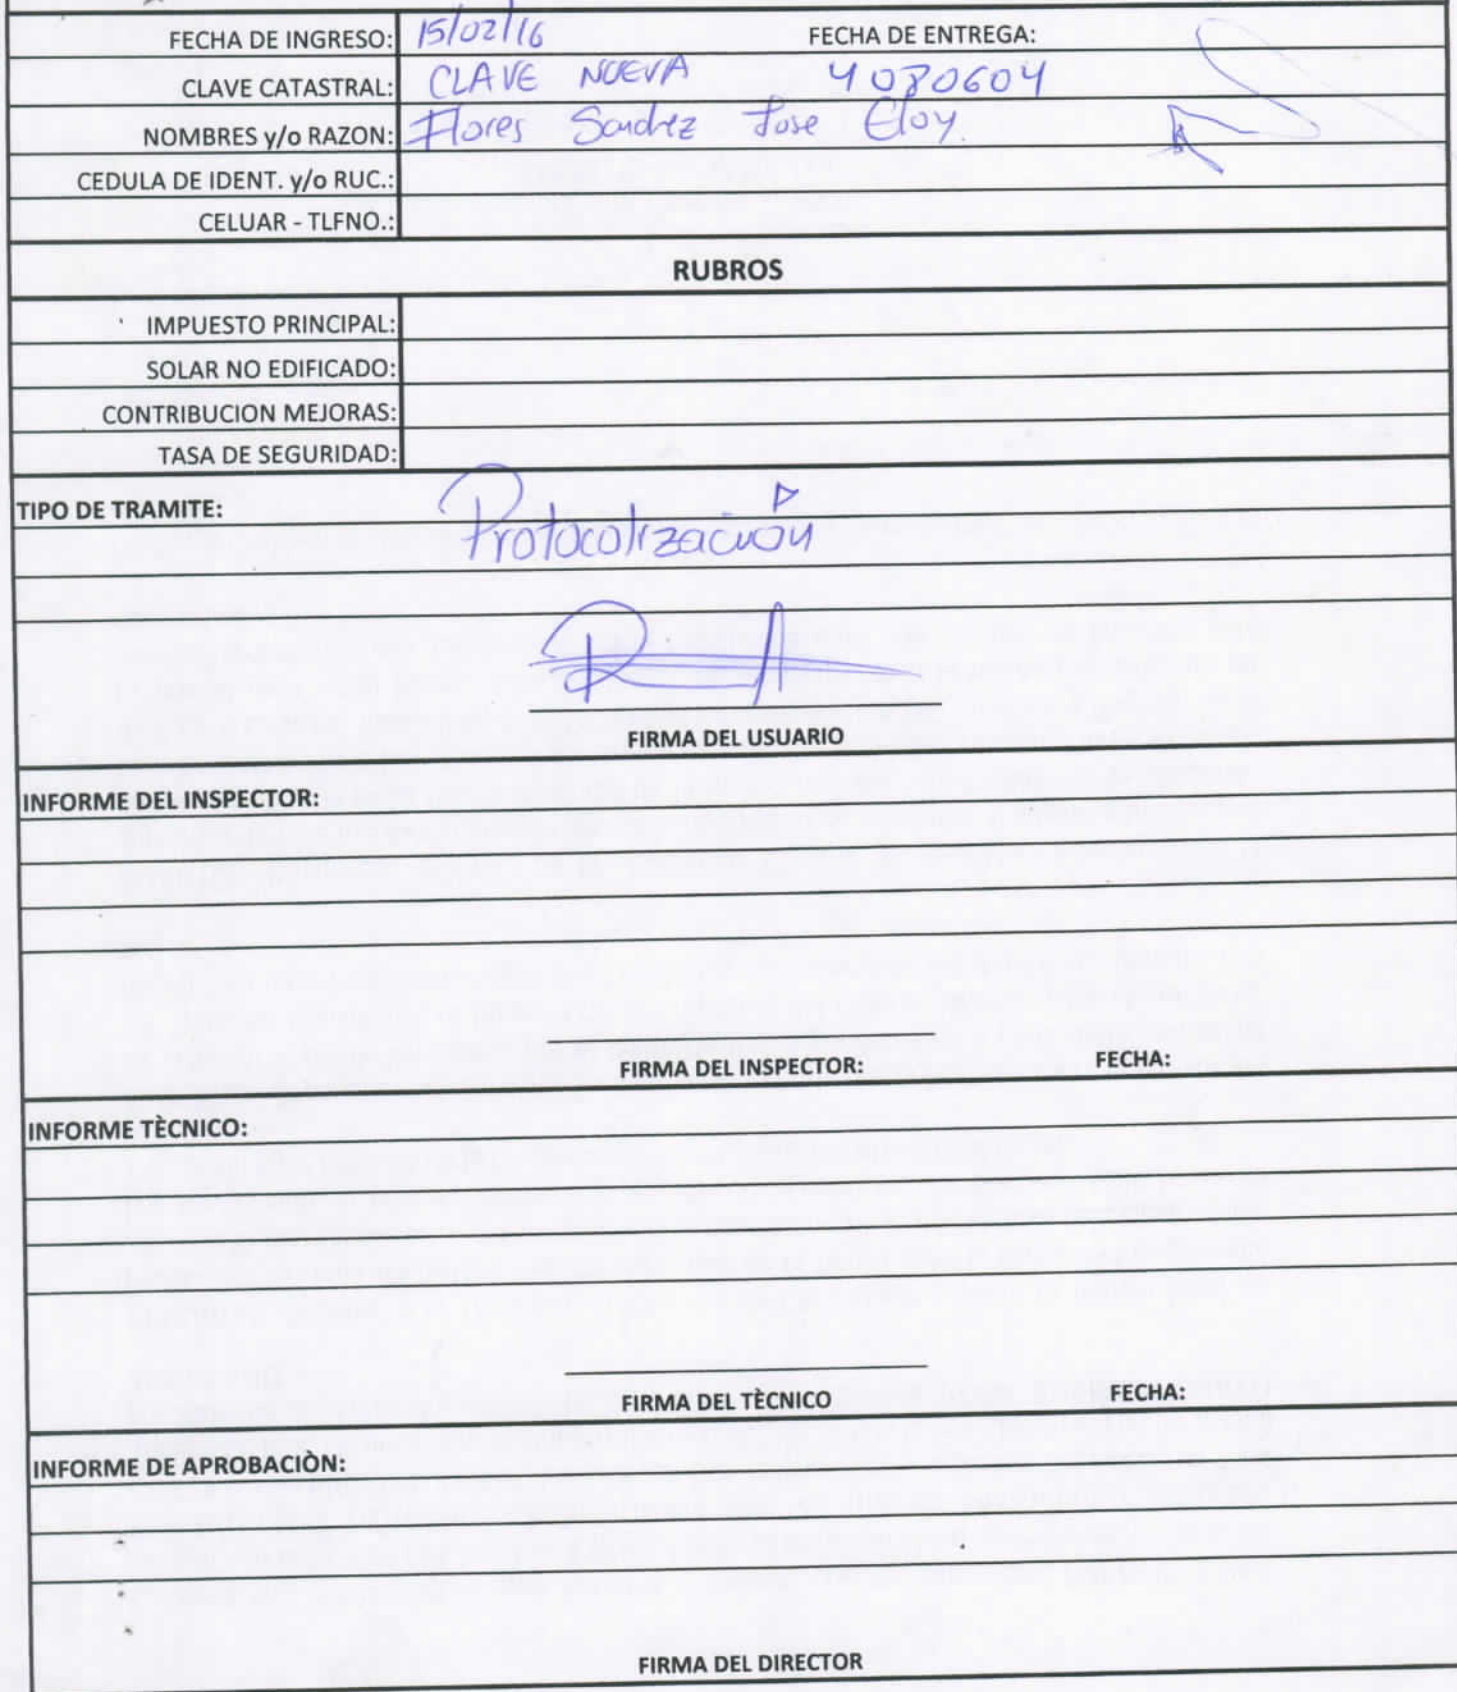 FECHA DE INGRESO: 15/02/16 FECHA DE ENTREGA:
CLAVE CATASTRAL: CLAVE NUEVA 4080604
NOMBRES y/o RAZON: Flores Sanchez Jose Eloy.
CEDULA DE IDENT. y/o RUC.:
CELUAR - TLFNO.:
RUBROS
IMPUESTO PRINCIPAL:
SOLAR NO EDIFICADO:
CONTRIBUCION MEJORAS:
TASA DE SEGURIDAD:
TIPO DE TRAMITE: Protocolización
FIRMA DEL USUARIO
INFORME DEL INSPECTOR:
FIRMA DEL INSPECTOR: FECHA:
INFORME TÈCNICO:
FIRMA DEL TÈCNICO FECHA:
INFORME DE APROBACIÒN:
FIRMA DEL DIRECTOR